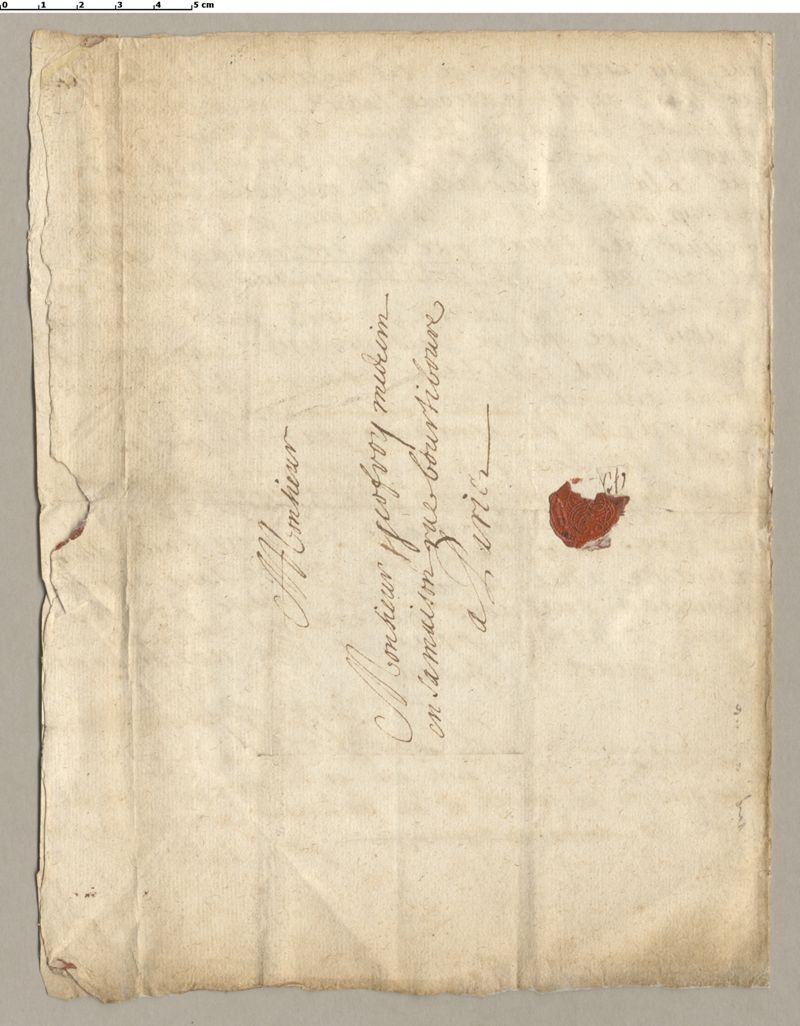 0 1 2 3 4 5 cm
Monsieur
Monsieur geofroy medecin
en Sa maison rue bourtiboure
a Paris